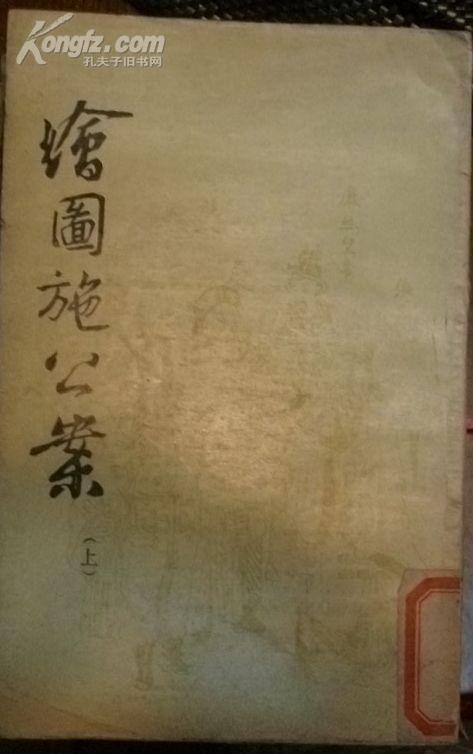 Kongfz.com
孔夫子旧书网
繪圖施公案
(上)